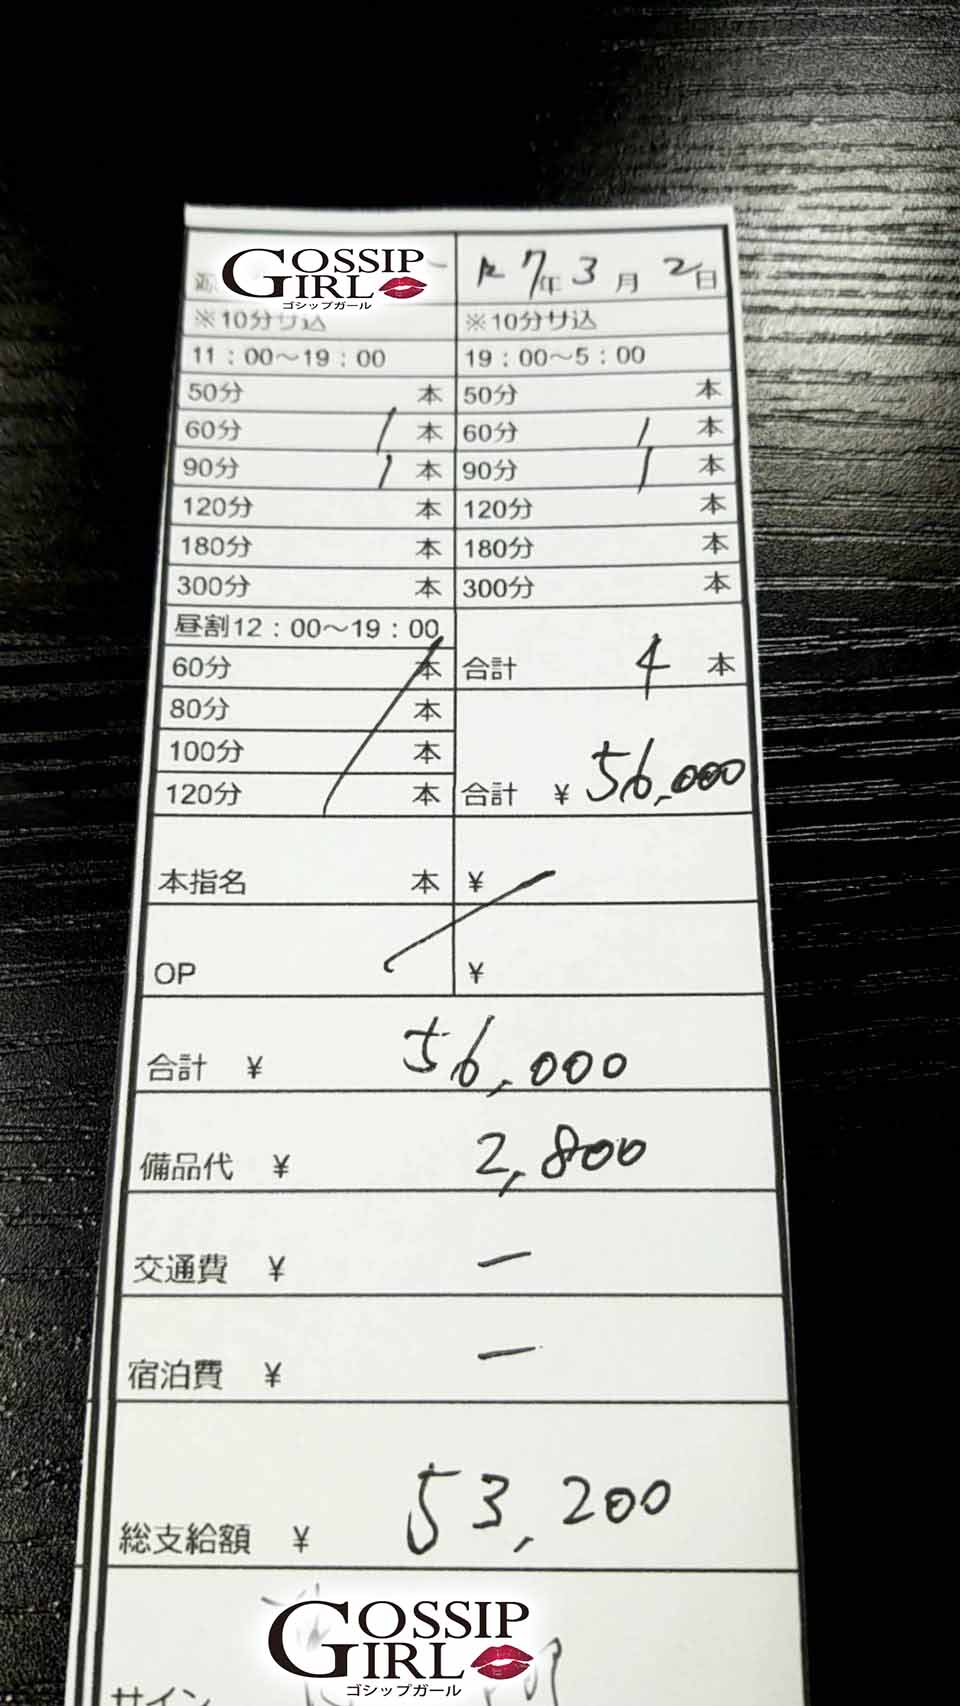 GOSSIP GIRL
ゴシップガール
R7年3月2日
※10分サ込 ※10分サ込
11：00～19：00 19：00～5：00
50分 本 50分 本
60分 1 本 60分 1 本
90分 1 本 90分 1 本
120分 本 120分 本
180分 本 180分 本
300分 本 300分 本
昼割12：00～19：00
60分 本 合計 4 本
80分 本
100分 本
120分 本 合計 ¥ 56,000
本指名 本 ¥
OP ¥
合計 ¥ 56,000
備品代 ¥ 2,800
交通費 ¥ ー
宿泊費 ¥ ー
総支給額 ¥ 53,200
GOSSIP GIRL
ゴシップガール
サイン